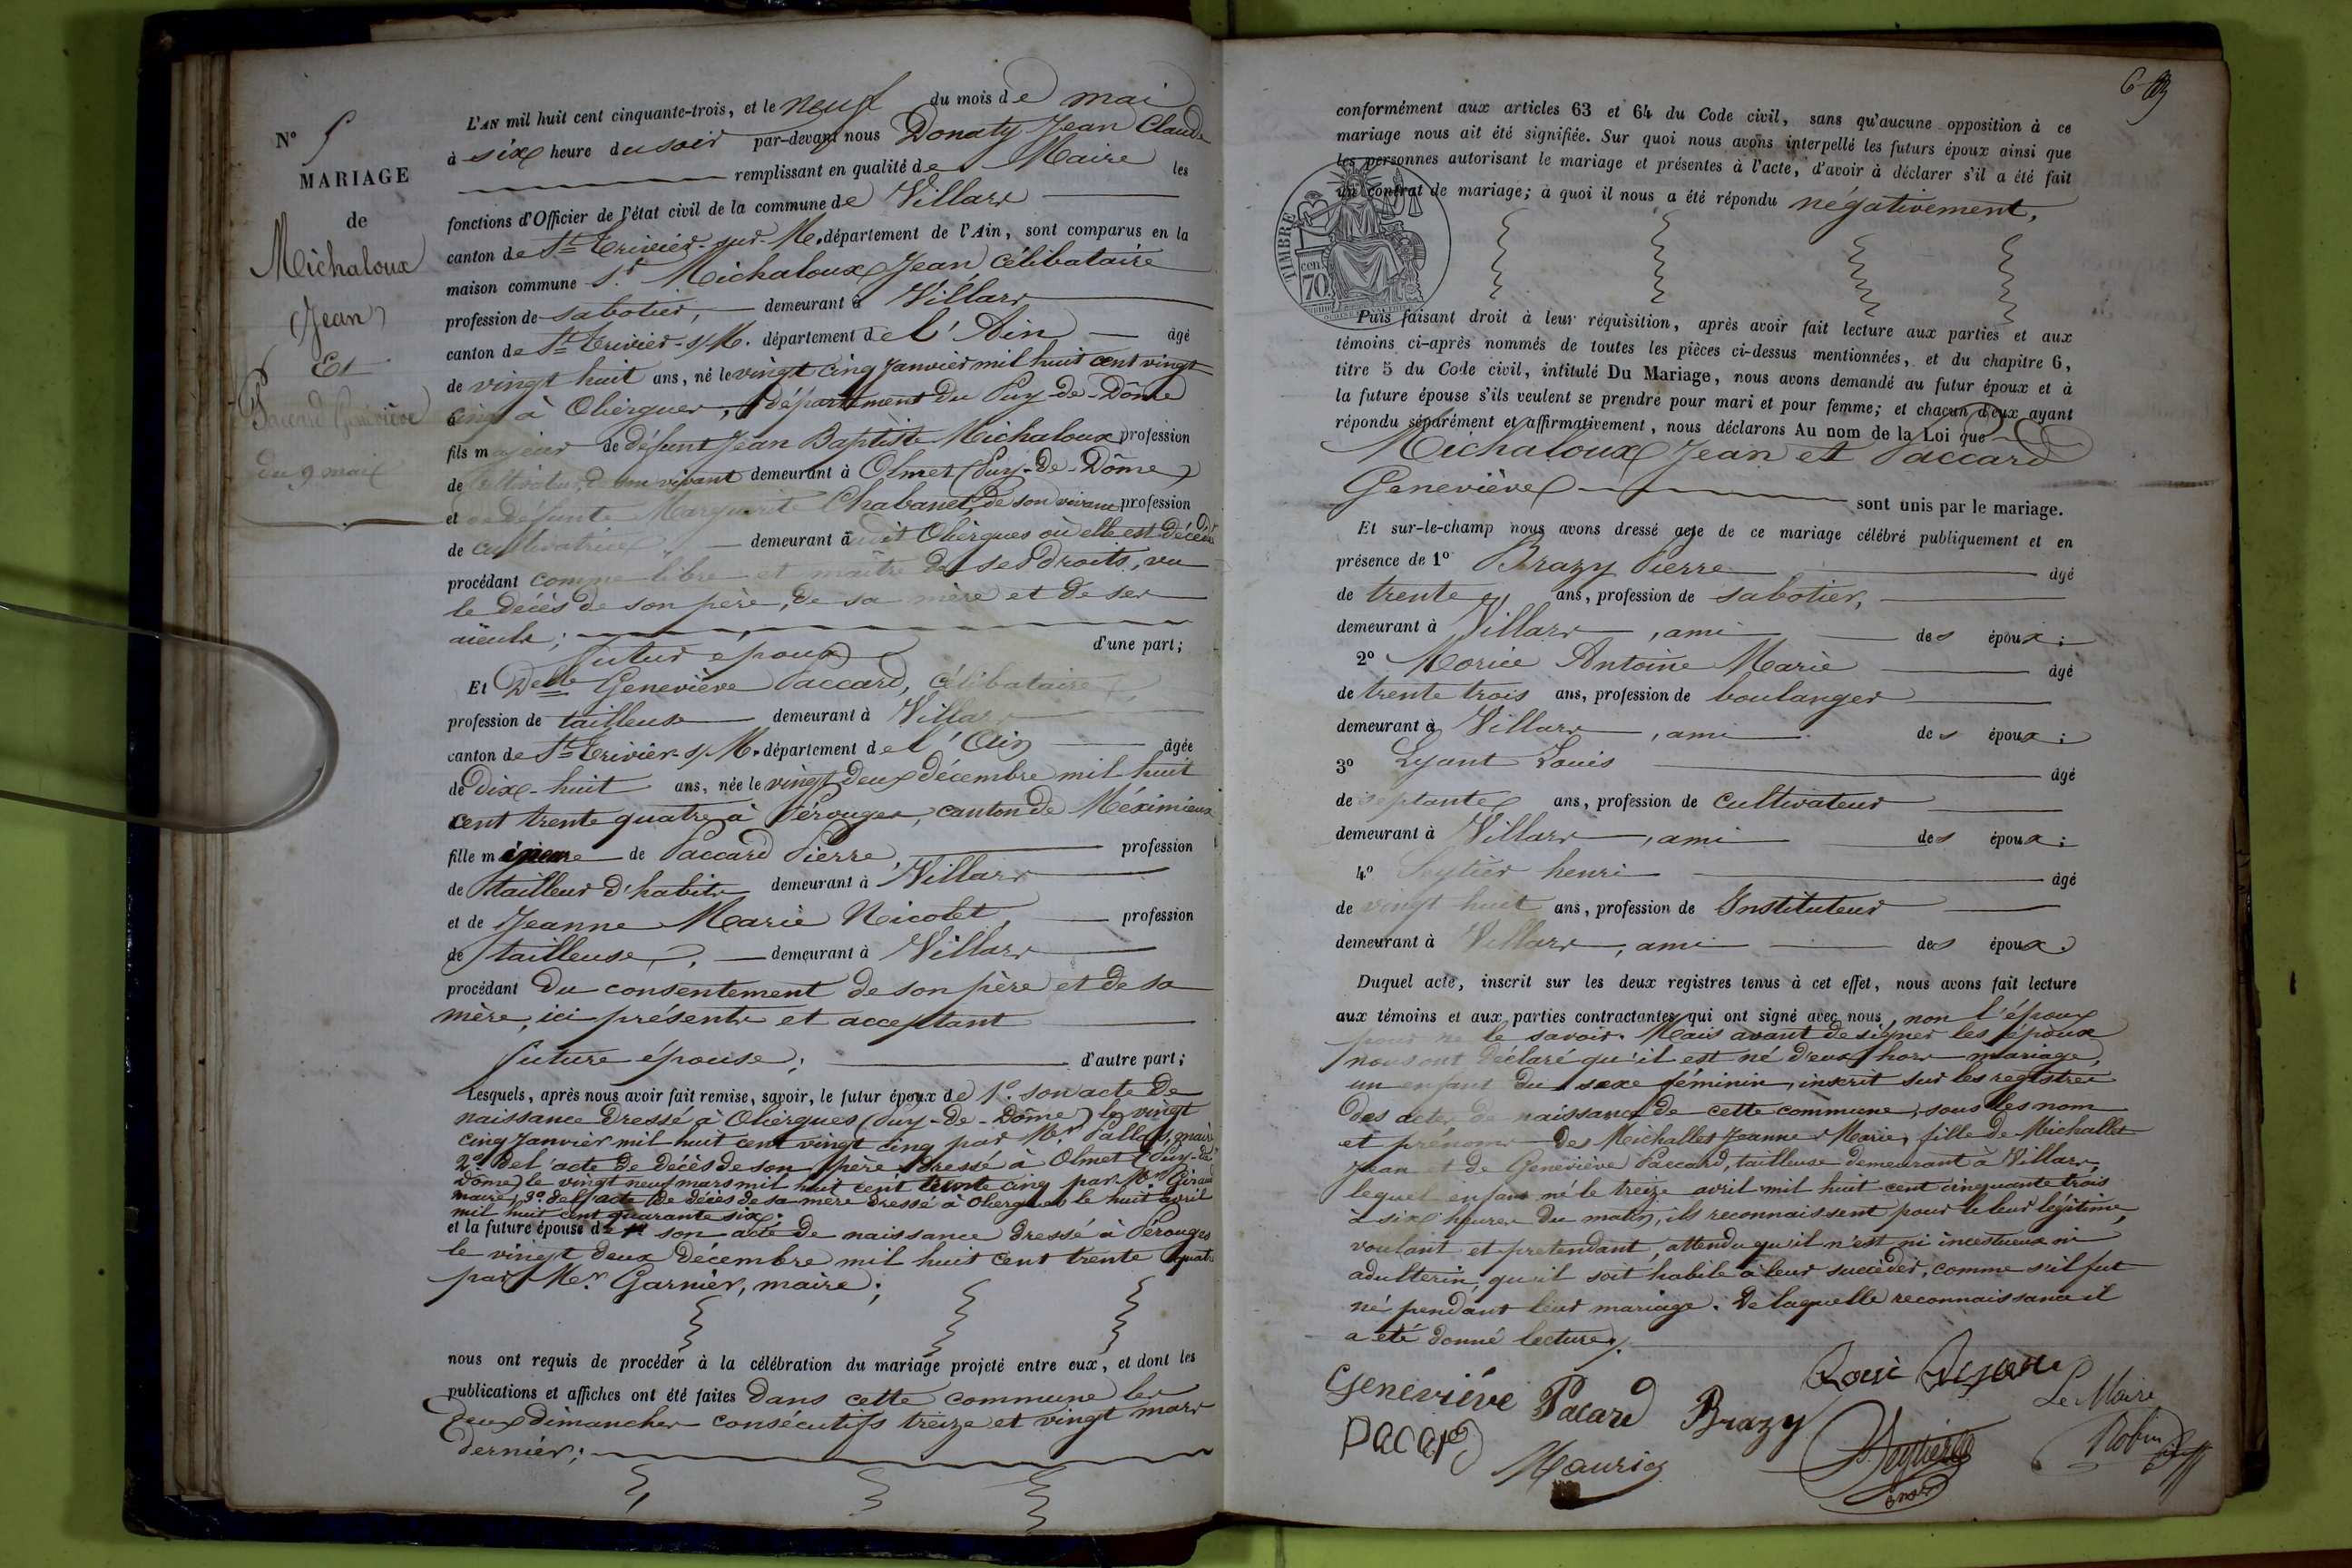 N° 5
MARIAGE
de
Michaloux
Jean
Et
Paccard Geneviève
du 9 mai
L'AN mil huit cent cinquante-trois, et le neuf du mois de mai
à six heure du soir par-devant nous Donaty Jean Claude
remplissant en qualité de Maire les
fonctions d'Officier de l'état civil de la commune de Villars
canton de St Trivier-sur-M. département de l'Ain, sont comparus en la
maison commune Sr. Michaloux Jean, célibataire
profession de sabotier, demeurant à Villars
canton de St Trivier-s/M. département de l'Ain âgé
de vingt huit ans, né le vingt cinq Janvier mil huit cent vingt
cinq à Olièrgues, département du Puy-de-Dôme
fils majeur de défunt Jean Baptiste Michaloux profession
de cultivateur, de son vivant demeurant à Olmet (Puy-de-Dôme)
et de défunte Marguerite Chabanet, de son vivant profession
de cultivatrice demeurant à udit Olièrgues où elle est décédé
procédant comme libre et maître de ses droits, vu
le décès de son père, de sa mère et de ses
aïeuls;
futur epoux d'une part;
Et Delle Geneviève Paccard, célibataire
profession de tailleuse demeurant à Villars
canton de St Trivier-s/M. département de l'Ain âgée
de Dix-huit ans, née le vingt deux décembre mil huit
cent trente quatre à Pérouges, canton de Méximieux
fille mineure de Paccard Pierre, profession
de tailleur d'habits demeurant à Villars
et de Jeanne Marie Nicolet, profession
de tailleuse, demeurant à Villars
procédant du consentement de son père et de sa
mère, ici présents et acceptant
future épouse; d'autre part;
Lesquels, après nous avoir fait remise, savoir, le futur époux de 1°. son acte de
naissance dressé à Olièrgues (Puy-de-Dôme) le vingt
cinq Janvier mil huit cent vingt cinq par Mr. Pallas, maire
2°. de l'acte de décès de son père dressé à Olmet (Puy-de-
Dôme) le vingt neuf mars mil huit cent trente cinq par Mr. Giraud
maire, 3°. de l'acte de décès de sa mère dressé à Olièrgues le huit avril
mil huit cent quarante six.
et la future épouse de 1° son acte de naissance dressé à Pérouges
le vingt deux Décembre mil huit cent trente quatre
par Mr. Garnier, maire;
nous ont requis de procéder à la célébration du mariage projeté entre eux, et dont les
publications et affiches ont été faites dans cette commune les
deux dimanches consécutifs treize et vingt mars
dernier;
conformément aux articles 63 et 64 du Code civil, sans qu'aucune opposition à ce
mariage nous ait été signifiée. Sur quoi nous avons interpellé les futurs époux ainsi que
les personnes autorisant le mariage et présentes à l'acte, d'avoir à déclarer s'il a été fait
un contrat de mariage; à quoi il nous a été répondu négativement.
TIMBRE
cen.
70
Puis faisant droit à leur réquisition, après avoir fait lecture aux parties et aux
témoins ci-après nommés de toutes les pièces ci-dessus mentionnées, et du chapitre 6,
titre 5 du Code civil, intitulé Du Mariage, nous avons demandé au futur époux et à
la future épouse s'ils veulent se prendre pour mari et pour femme; et chacun d'eux ayant
répondu séparément et affirmativement, nous déclarons Au nom de la Loi que
Michaloux Jean et Paccard
Geneviève sont unis par le mariage.
Et sur-le-champ nous avons dressé acte de ce mariage célébré publiquement et en
présence de 1° Brazy Pierre âgé
de trente ans, profession de sabotier,
demeurant à Villars, ami des époux;
2° Morice Antoine Marie âgé
de trente trois ans, profession de boulanger
demeurant à Villars, ami des époux;
3° Lyant Louis âgé
de septante ans, profession de cultivateur
demeurant à Villars, ami des époux;
4° Seytier henri âgé
de vingt huit ans, profession de Instituteur
demeurant à Villars, ami des époux.
Duquel acte, inscrit sur les deux registres tenus à cet effet, nous avons fait lecture
aux témoins et aux parties contractantes qui ont signé avec nous, non l'époux
pour ne le savoir. Mais avant de signer les époux
nous ont déclaré qu'il est né d'eux hors mariage,
un enfant du sexe féminin, inscrit sur les registres
des actes de naissance de cette commune, sous les nom
et prénoms des Michallet Jeanne Marie, fille de Michallet
Jean et de Geneviève Paccard, tailleuse demeurant à Villars,
lequel enfant né le treize avril mil huit cent cinquante trois
à six heures du matin, ils reconnaissent pour le leur légitime,
voulant et pretendant, attendu qu'il n'est ni incestueux ni
adultérin, qu'il soit habile à leur succéder, comme s'il fut
né pendant leur mariage. De laquelle reconnaissance il
a été donné lecture.
Geneviéve Pacard Brazy
Le Maire
pacard
Maurice
Robin